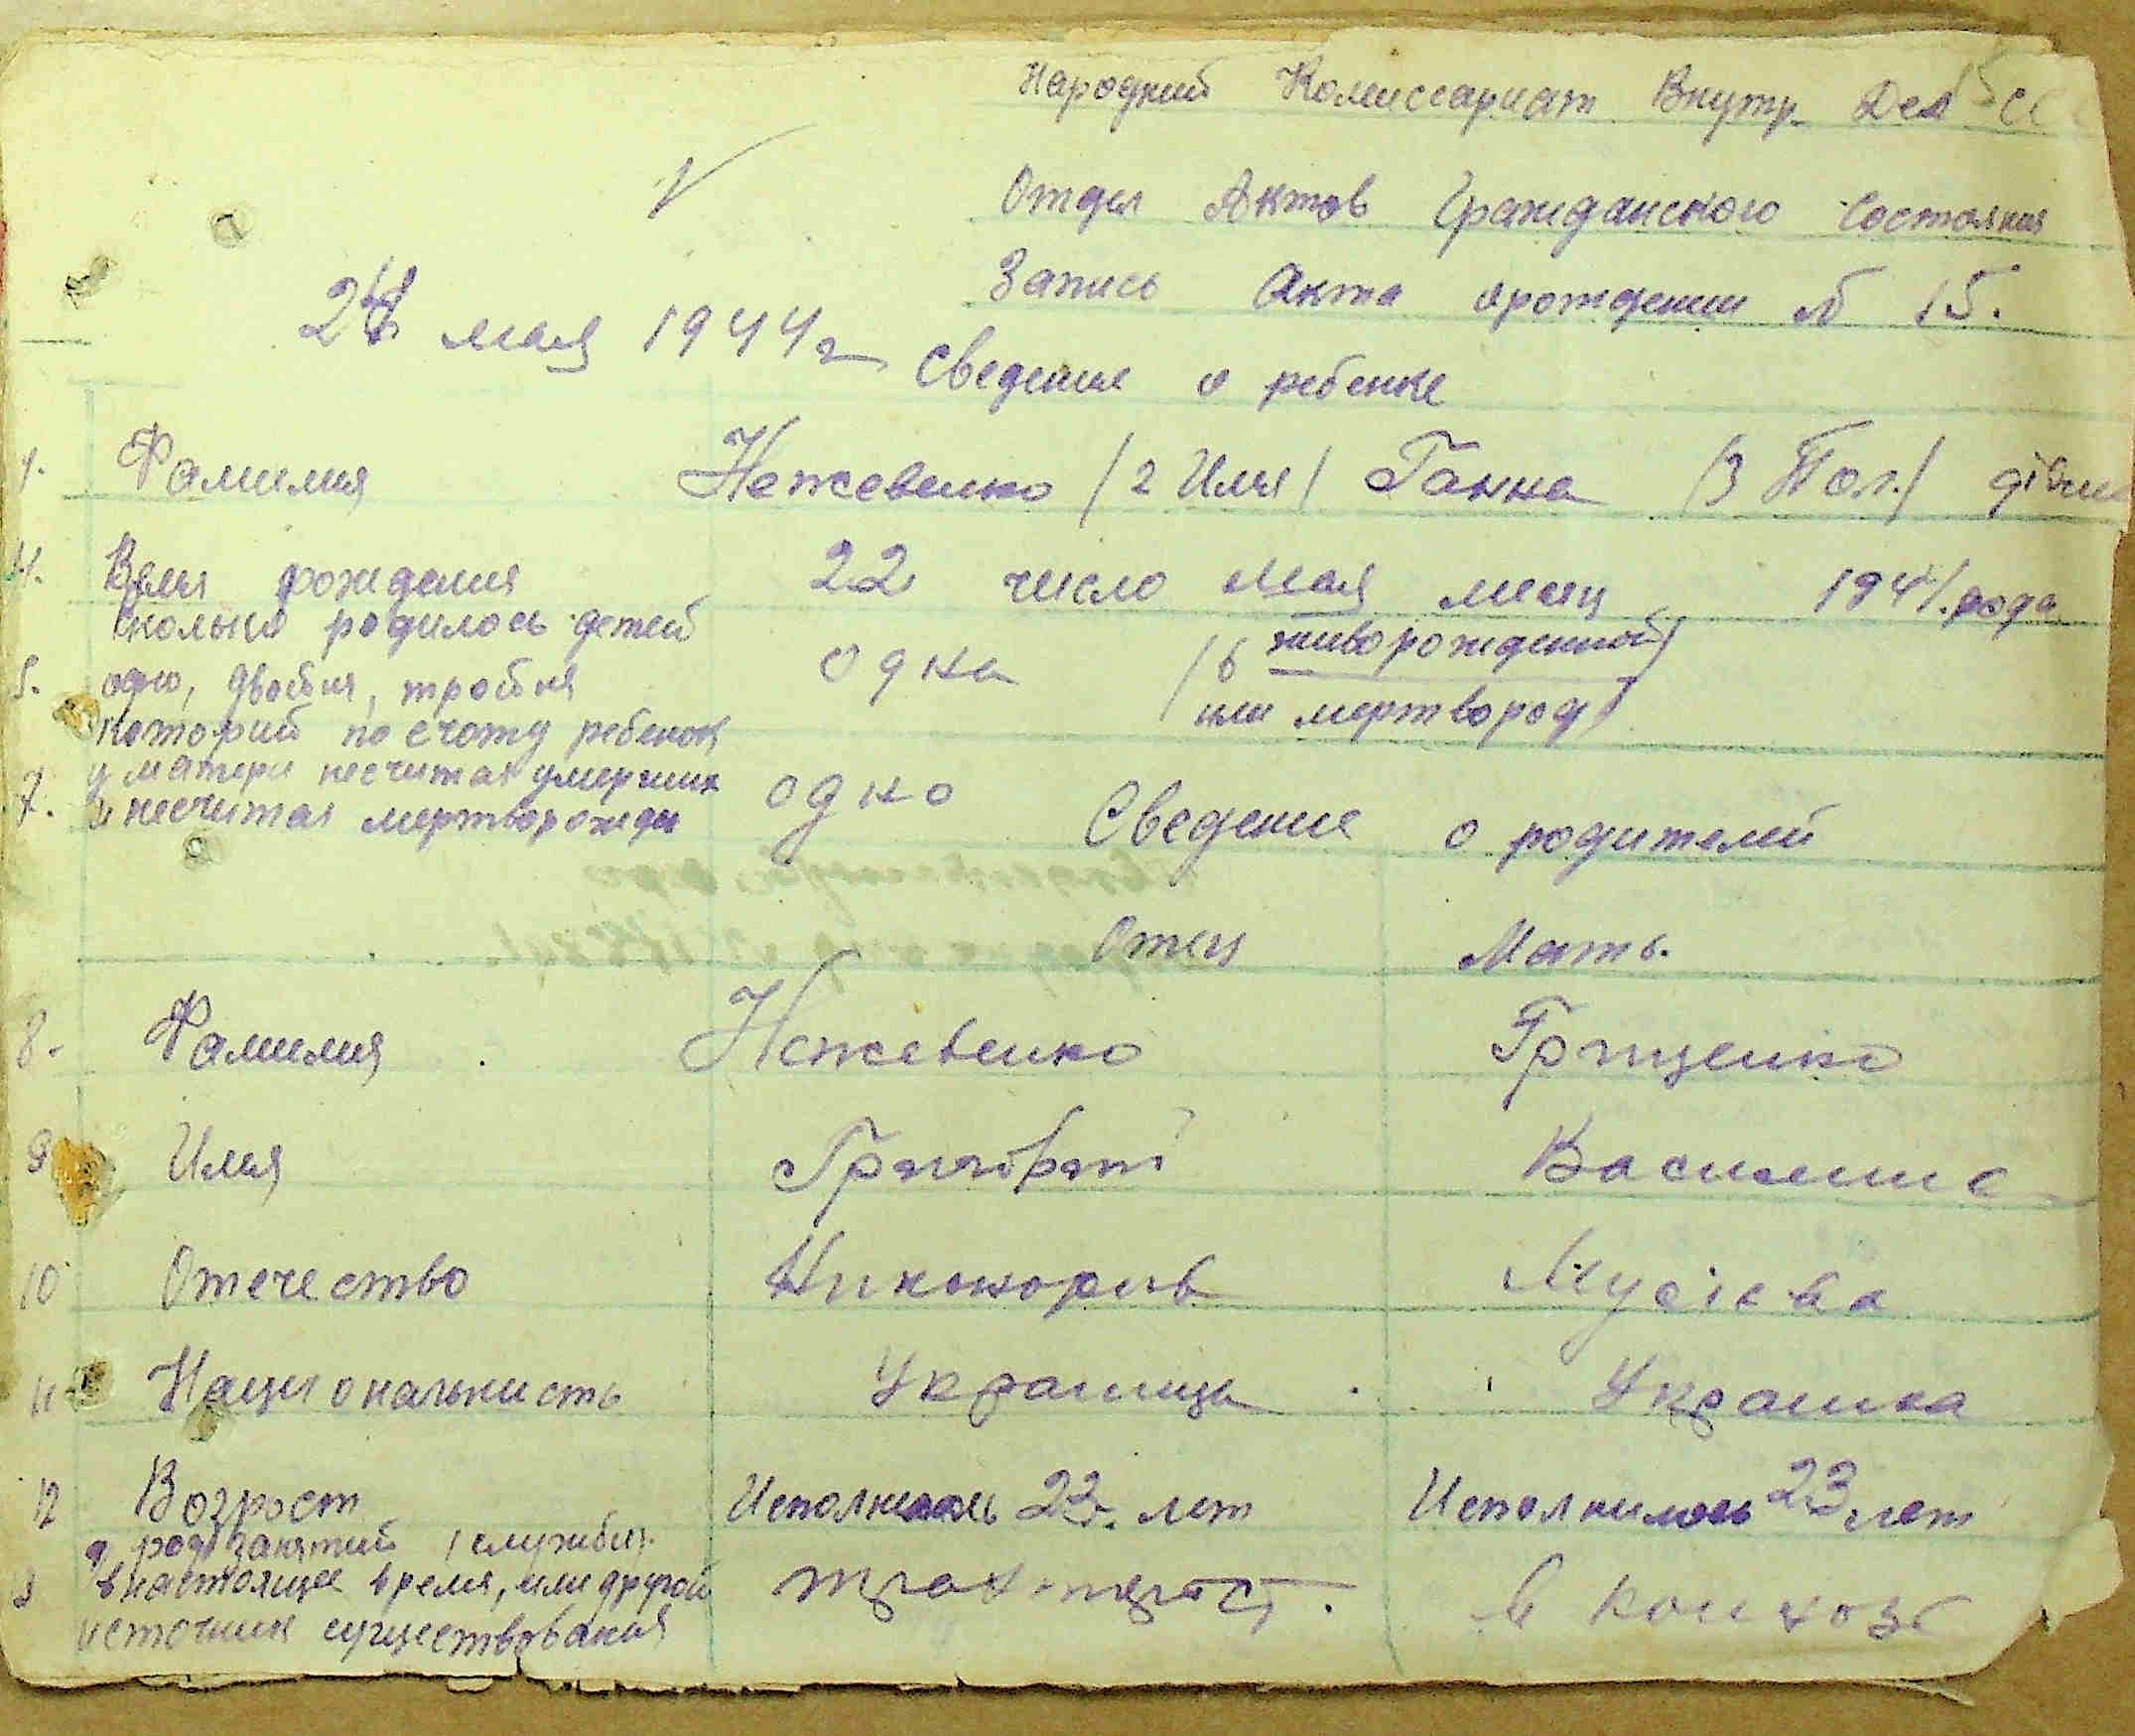 Народний Комиссариат Внутр. Дел
Отдел Актов Гражданского Состояния
Запись Акта о рождении № 15.
мая 1944 г
Сведения о ребенке
1. Фамилия Нежевенко / 2 Имя / Ганна /3 Пол./
4. Время рождения 22 число мая месяц 194 . рода
сколько родилось детей
5. одно, двойня, тройня одна / 6 живорожденной /
или мертвород /
которий по счоту ребенок
у матери несчитая умерших
7. и несчитая мертворожден одно
Сведение о родителей
Отец Мать.
8. Фамилия Нежевенко Грищенко
9 Имя Григорий Василина
10 Отечество Никонорив Мусіева
11 Национальнисть Украинец Украинка
12 Возрост Исполнилось 23. лет Исполнилось 23 лет
род занятий (служби).
в настоящее время, или другой тракторист. в колхозе
источник существования